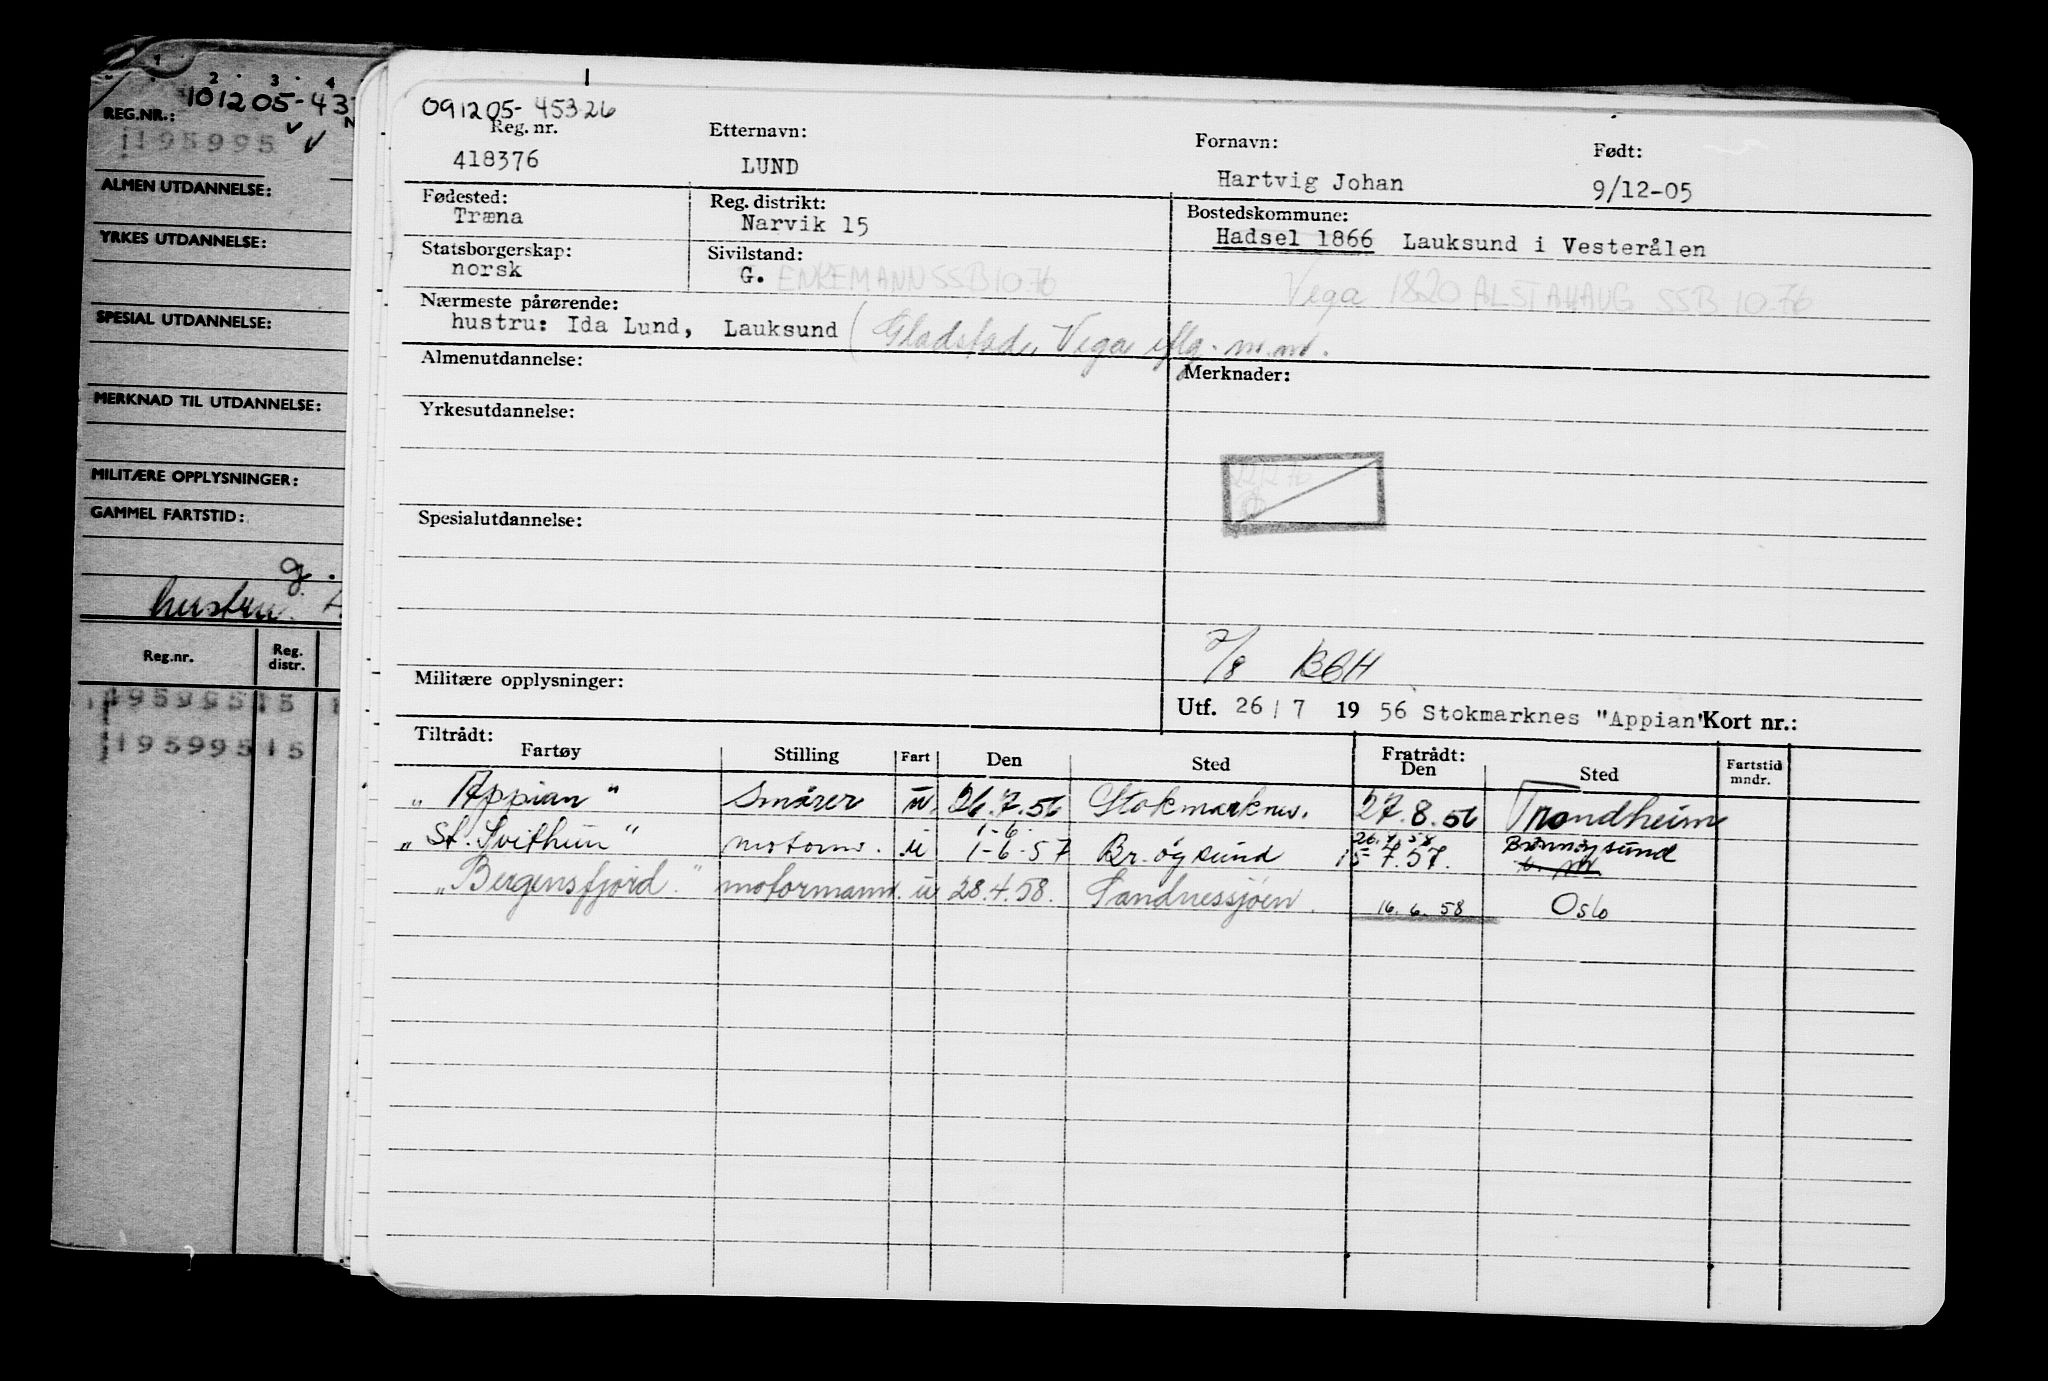 1
2 3 4
101205-43
REG.NR.:
195995
ALMEN UTDANNELSE:
YRKES UTDANNELSE:
SPESIAL UTDANNELSE:
MERKNAD TIL UTDANNELSE:
MILITÆRE OPPLYSNINGER:
GAMMEL FARTSTID:
g.
hustru:
Reg.nr. Reg. distr.
195995 15
195995 15
091205-45326
Reg. nr. Etternavn: Fornavn: Født:
418376 LUND Hartvig Johan 9/12-05
Fødested: Reg. distrikt: Bostedskommune:
Træna Narvik 15 Hadsel 1866 Lauksund i Vesterålen
Statsborgerskap: Sivilstand:
norsk G. ENKEMANN SSB 10.76 Vega 1820 ALSTAHAUG SSB 10.76
Nærmeste pårørende:
hustru: Ida Lund, Lauksund (Gladstad, Vega iflg. m.m.
Almenutdannelse: Merknader:
Yrkesutdannelse:
22/12 76
Spesialutdannelse:
7/8 BCH
Militære opplysninger:
Utf. 26/7 1956 Stokmarknes "Appian" Kort nr.:
Tiltrådt: Fratrådt:
Fartøy Stilling Fart Den Sted Den Sted Fartstid mndr.
"Appian" Smører u 26.7.56 Stokmarknes. 27.8.56 Trondheim
1-6. 26.4.58 Brønnøysund
"St. Svithun" motorm. u 1-6-57 Br.øysund 15-7.57.
"Bergensfjord." motormann. u 28.4.58. Sandnessjøen. 16.6.58 Oslo